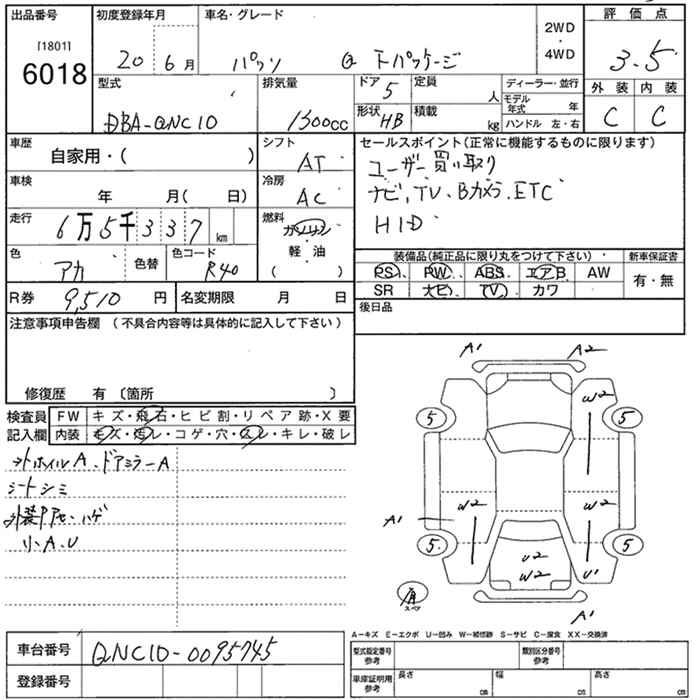 出品番号
[1801]
6018
初度登録年月
20年 6月
車名・グレード
パッソ G Fパッケージ
2WD
・
4WD
評価点
3.5
外装 内装
C C
型式
DBA-QNC10
排気量
1300cc
ドア 5
形状 HB
定員 人
積載 kg
ディーラー・並行
モデル年式 年
ハンドル 左・右
車歴
自家用・( )
車検
年 月( 日)
走行
6万5千337 km
色
アカ
色替
色コード
R40
R券 9,510円
名変期限 月 日
シフト
AT
冷房
AC
燃料
ガソリン
・
軽・油
( )
セールスポイント(正常に機能するものに限ります)
ユーザー買い取り
ナビ、TV、Bカメラ、ETC
HID
装備品(純正品に限り丸をつけて下さい)
PS PW ABS エアB AW
SR ナビ TV カワ
新車保証書
有・無
後日品
注意事項申告欄(不具合内容等は具体的に記入して下さい)
修復歴 有〔箇所 〕
検査員記入欄
FW キズ・飛石・ヒビ割・リペア跡・X要
内装 キズ・汚レ・コゲ・穴・スレ・キレ・破レ
ホイルA、ドアミラーA
シートシミ
ハゲ
小A.U
A1 A2
W2
5 5
A1 W2 W2
5 5
U2
W2
U1
スペア
A1
A-キズ E-エクボ U-凹み W-補修跡 S-サビ C-腐食 XX-交換済
車台番号 QNC10-0095745
登録番号
型式指定番号
参考
類別区分番号
参考
車庫証明用
参考
長さ cm
幅 cm
高さ cm